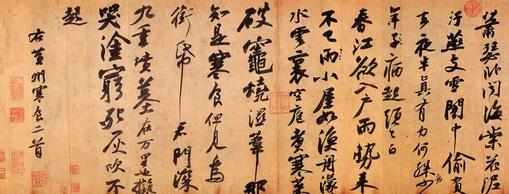 蕭瑟臥聞海棠花泥
汙燕支雪闇中偷負
去夜半真有力何殊少
年子病起頭已白
春江欲入戶雨勢來
不已雨小屋如漁舟濛濛
水雲裏空庖煮寒菜
破竈燒濕葦那
知是寒食但見烏
銜帋君門深
九重墳墓在万里也擬
哭塗窮死灰吹不
起
右黃州寒食二首